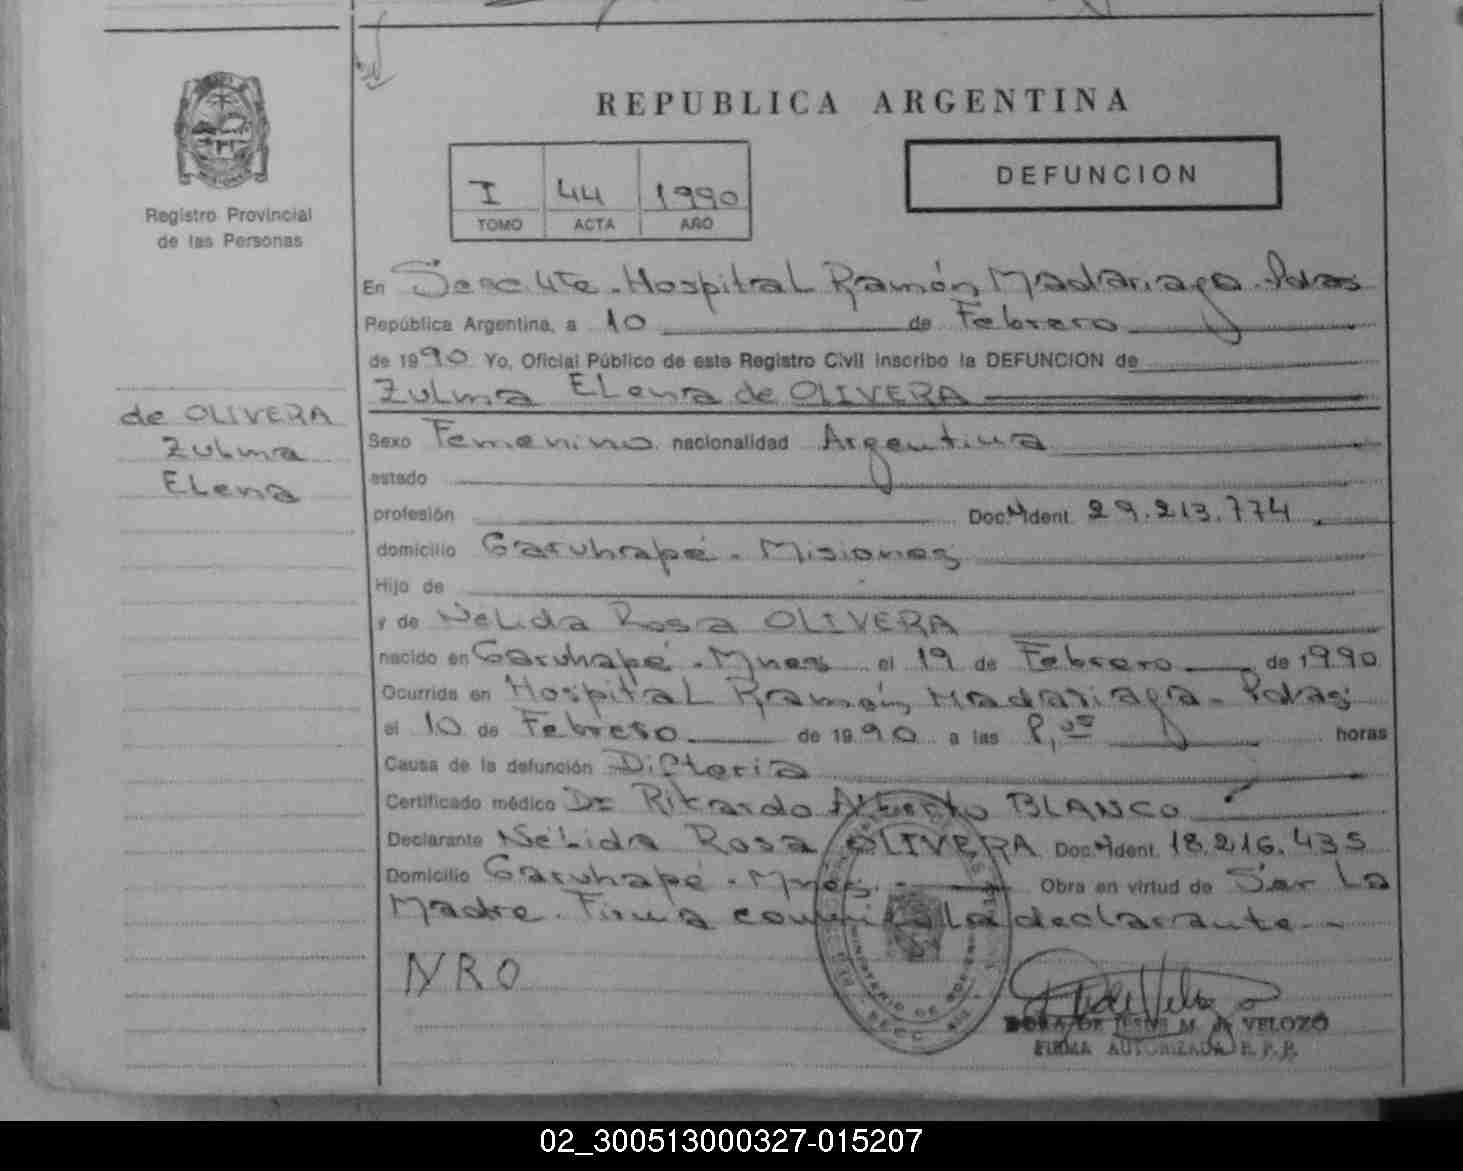 REPUBLICA ARGENTINA
DEFUNCION
I 44 1990
TOMO ACTA AÑO
Registro Provincial
de las Personas
En Secc. 4te. Hospital Ramón Madariaga - Pdas
República Argentina, a 10 de Febrero
de 1990 Yo, Oficial Público de este Registro Civil inscribo la DEFUNCION de
Zulma Elena de OLIVERA
de OLIVERA
Zulma
Elena
Sexo Femenino nacionalidad Argentina
estado
profesión Doc. Ident. 29.213.774
domicilio Garuhapé - Misiones
Hijo de
y de Nelida Rosa OLIVERA
nacido en Garuhapé - Mnes el 19 de Febrero de 1990
Ocurrida en Hospital Ramón Madariaga - Pdas
el 10 de Febrero de 1990 a las 8,00 horas
Causa de la defunción Difteria
Certificado médico Dr Rikardo Alberto BLANCO
Declarante Nélida Rosa OLIVERA Doc. Ident. 18.216.435
Domicilio Garuhapé - Mnes. Obra en virtud de Ser La
Madre. Firma conmigo La declarante.--
NRO
MINISTERIO DE GOBIERNO
DORA DE JESUS M. de VELOZO
FIRMA AUTORIZADA R. P. P.
02_300513000327-015207